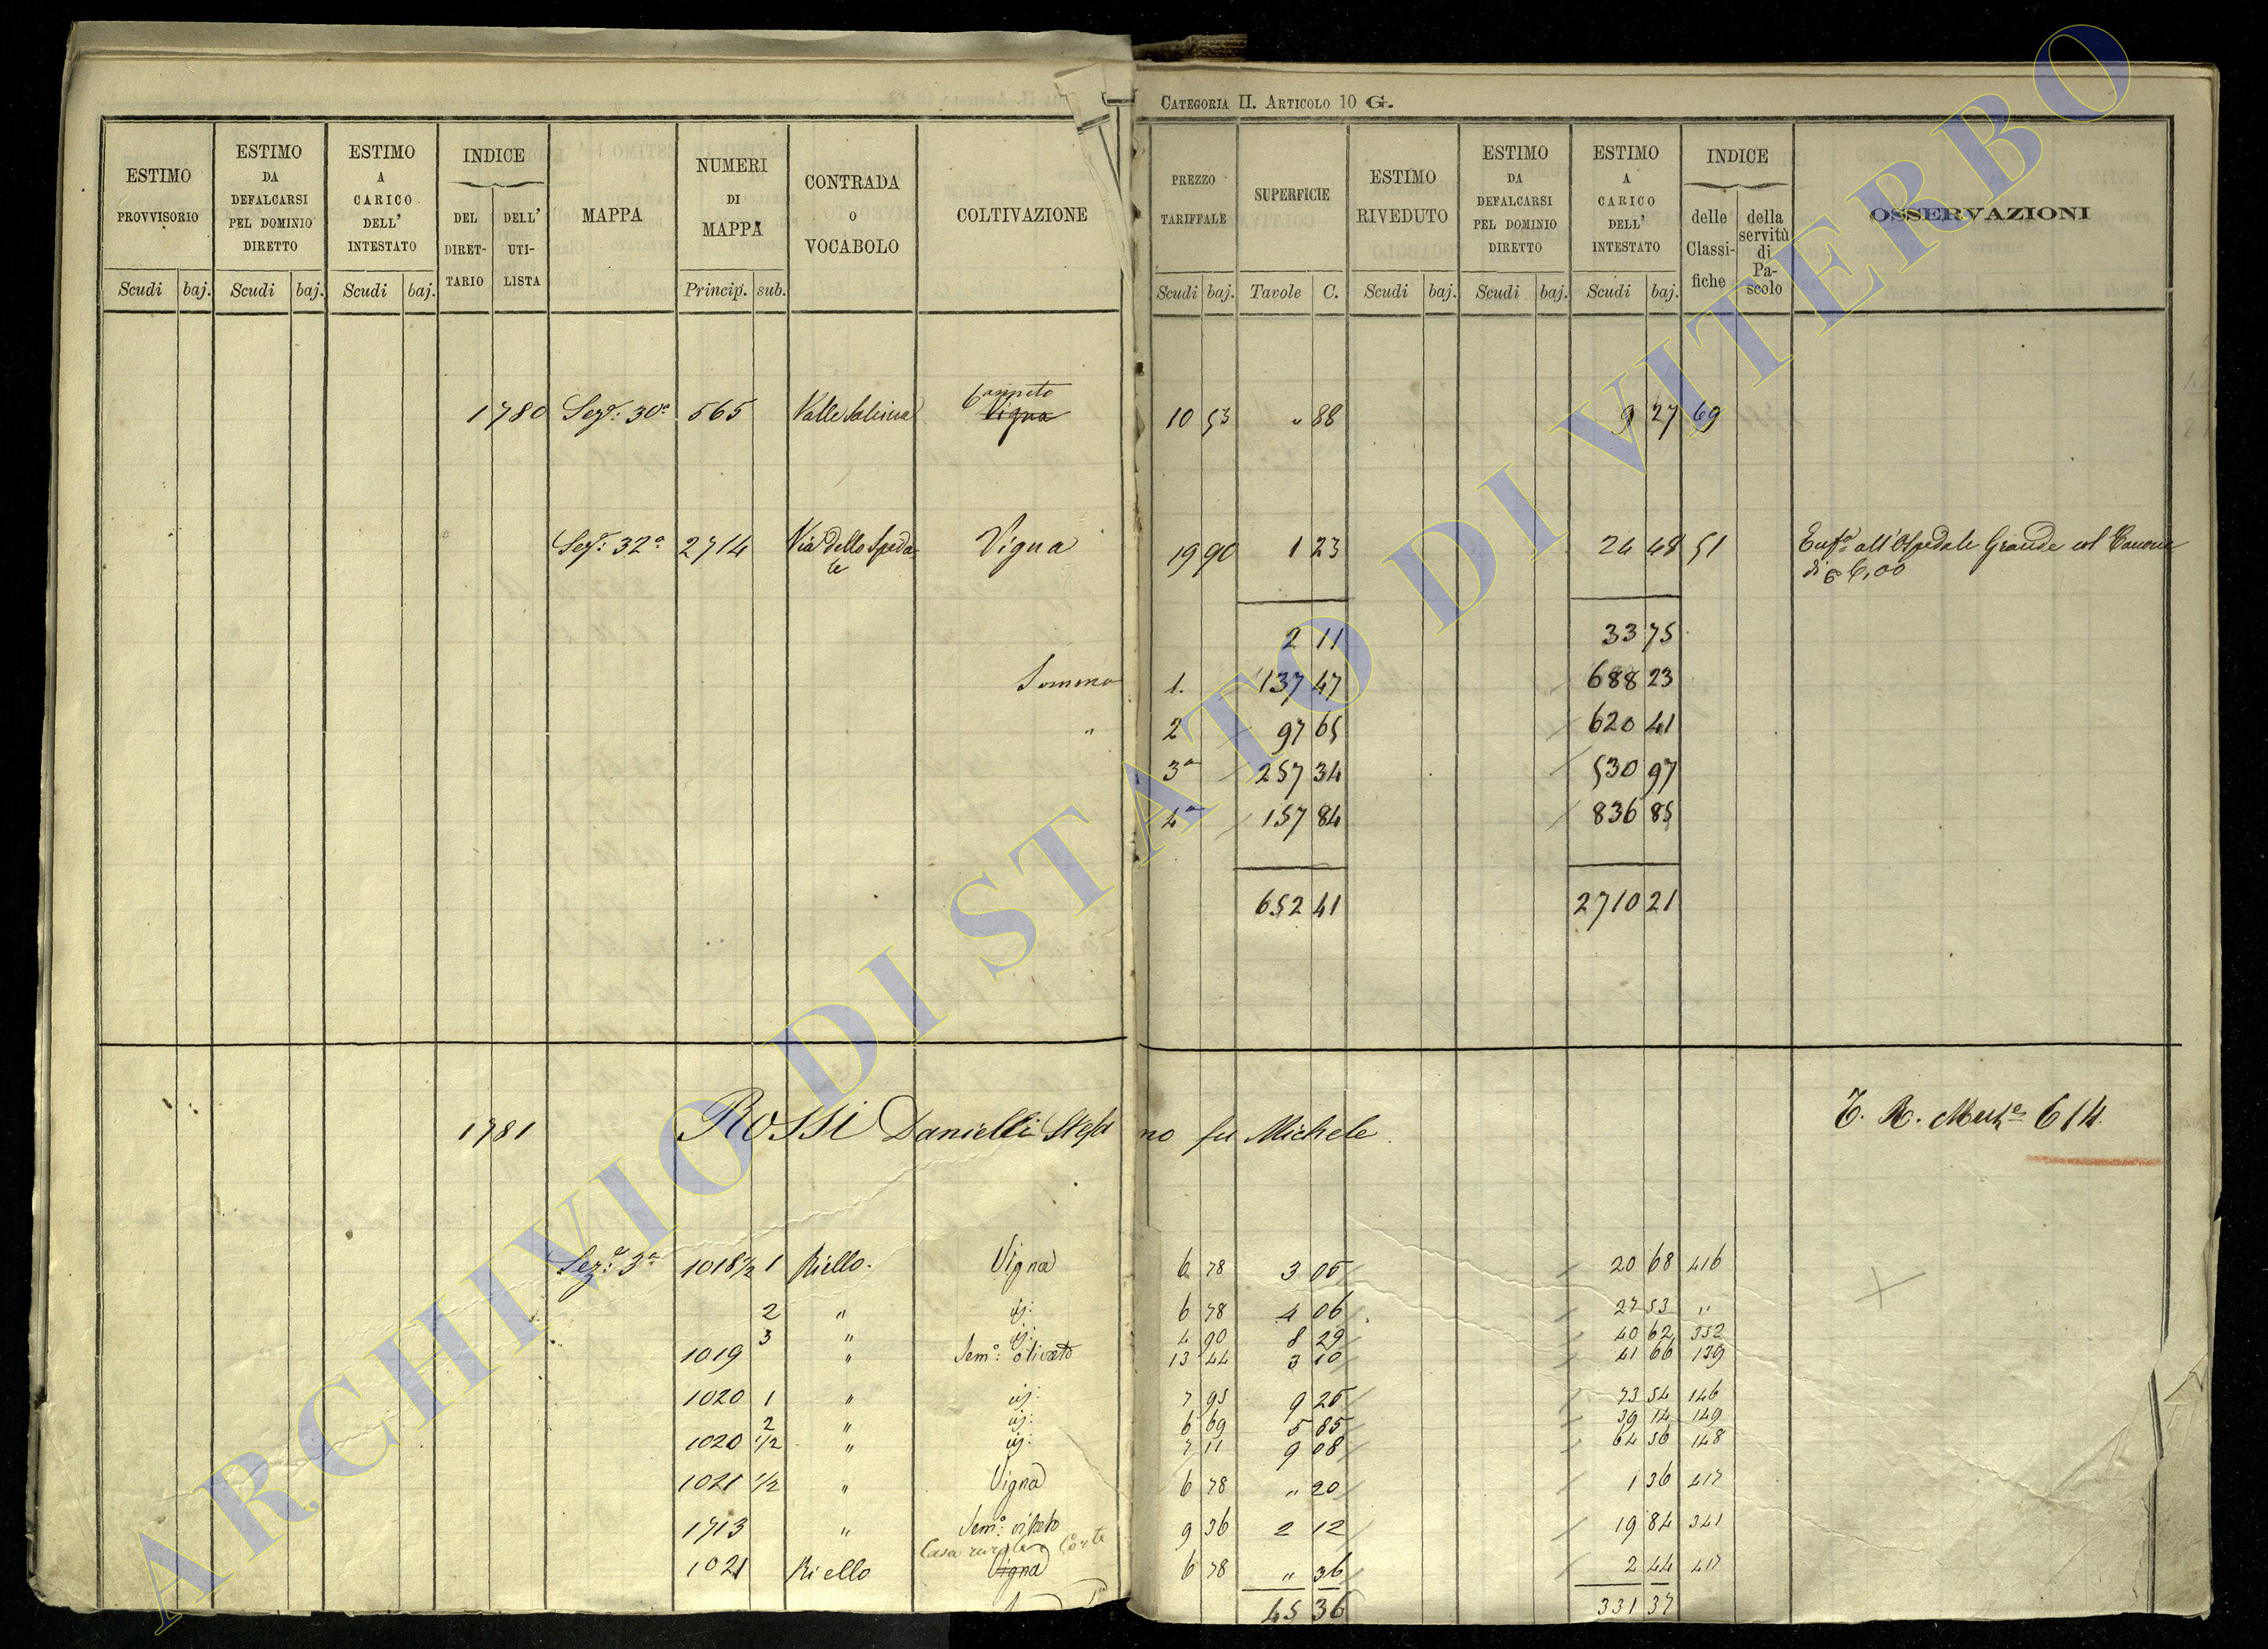 CATEGORIA II. ARTICOLO 10 G.
ESTIMO PROVVISORIO Scudi baj.
ESTIMO DA DEFALCARSI PEL DOMINIO DIRETTO Scudi baj.
ESTIMO A CARICO DELL' INTESTATO Scudi baj.
INDICE DEL DIRETTARIO DELL' UTILISTA
MAPPA
NUMERI DI MAPPA Princip. sub.
CONTRADA O VOCABOLO
COLTIVAZIONE
PREZZO TARIFFALE Scudi baj.
SUPERFICIE Tavole C.
ESTIMO RIVEDUTO Scudi baj.
ESTIMO DA DEFALCARSI PEL DOMINIO DIRETTO Scudi baj.
ESTIMO A CARICO DELL' INTESTATO Scudi baj.
INDICE delle Classifiche della servitù di Pascolo
OSSERVAZIONI
1780 Sez.e: 30a 565 Valle Salicina Canneto Vigna 10 53 " 88 9 27 69
Sez.e: 32a 2714 Via dello Spedale Vigna 19 90 1 23 24 48 51 Enf.a all'Ospedale Grande col Canone
di 6,00
2 11 33 75
Somma 1. 137 47 688 23
" 2 97 65 620 41
3a 257 34 530 97
4a 157 84 836 85
652 41 2710 21
1781 ROSSI Danielli Stefano fu Michele 614
Sez.e: 3a 1018 1/2 1 Riello. Vigna 6 78 3 05 20 68 416
2 " id: 6 78 4 06 27 53 "
3 " id: 4 90 8 29 40 62 352
1019 " Sem.o: olivato 13 44 3 10 41 66 139
1020 1 " id: 7 95 9 25 73 54 146
2 " id: 6 69 5 85 39 14 149
1020 1/2 " id: 7 11 9 08 64 56 148
1021 1/2 " Vigna 6 78 " 20 1 36 417
1713 " Sem.o: vitato 9 36 2 12 19 84 341
Casa rurale Corte
1021 Riello Vigna 6 78 " 36 2 44 417
45 36 331 37
ARCHIVIO DI STATO DI VITERBO